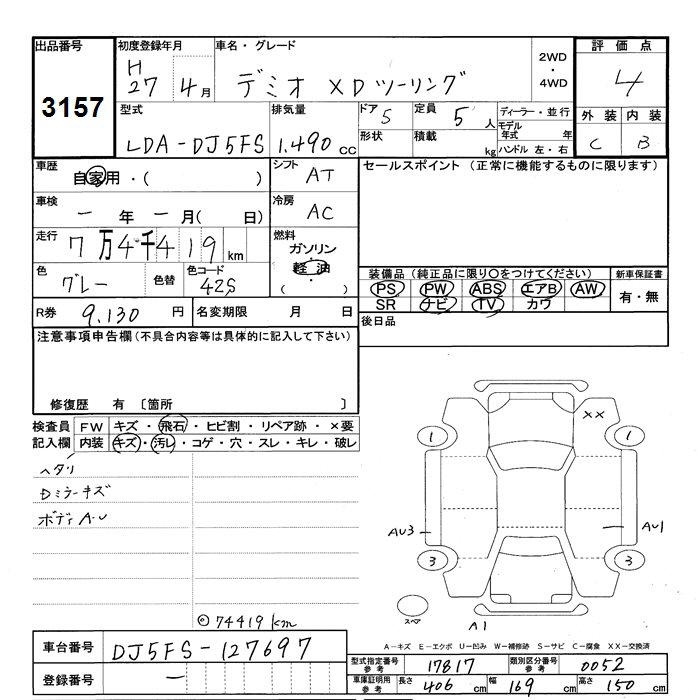 出品番号
3157
初度登録年月
H
27 4月
車名・グレード
デミオ XDツーリング
2WD
・
4WD
評価点
4
外装 内装
C B
型式
LDA-DJ5FS
排気量
1.490 cc
ドア 5
定員 5 人
ディーラー・並行
形状
積載 kg
モデル年式 年
ハンドル 左・右
車歴
自家用・( )
シフト
AT
車検
一 年 一 月( 日)
冷房
AC
走行
7万4千419 km
燃料
ガソリン
軽油
( ・ )
色
グレー
色替
色コード
42S
R券 9.130 円
名変期限 月 日
セールスポイント (正常に機能するものに限ります)
装備品(純正品に限り○をつけてください)
PS PW ABS エアB AW
SR ナビ TV カワ
新車保証書
有・無
後日品
注意事項申告欄(不具合内容等は具体的に記入して下さい)
修復歴 有 〔箇所 〕
検査員 FW キズ・飛石・ヒビ割・リペア跡・×要
記入欄 内装 キズ・汚レ・コゲ・穴・スレ・キレ・破レ
ヘタリ
Dミラーキズ
ボディA-U
◎74419km
××
1 1
AU3 AU1
3 3
スペア
A1
A-キズ E-エクボ U-凹み W-補修跡 S-サビ C-腐食 XX-交換済
車台番号 DJ5FS-127697
登録番号 一
型式指定番号
参考
17817
類別区分番号
参考
0052
車庫証明用
参考
長さ 406 cm 幅 169 cm 高さ 150 cm